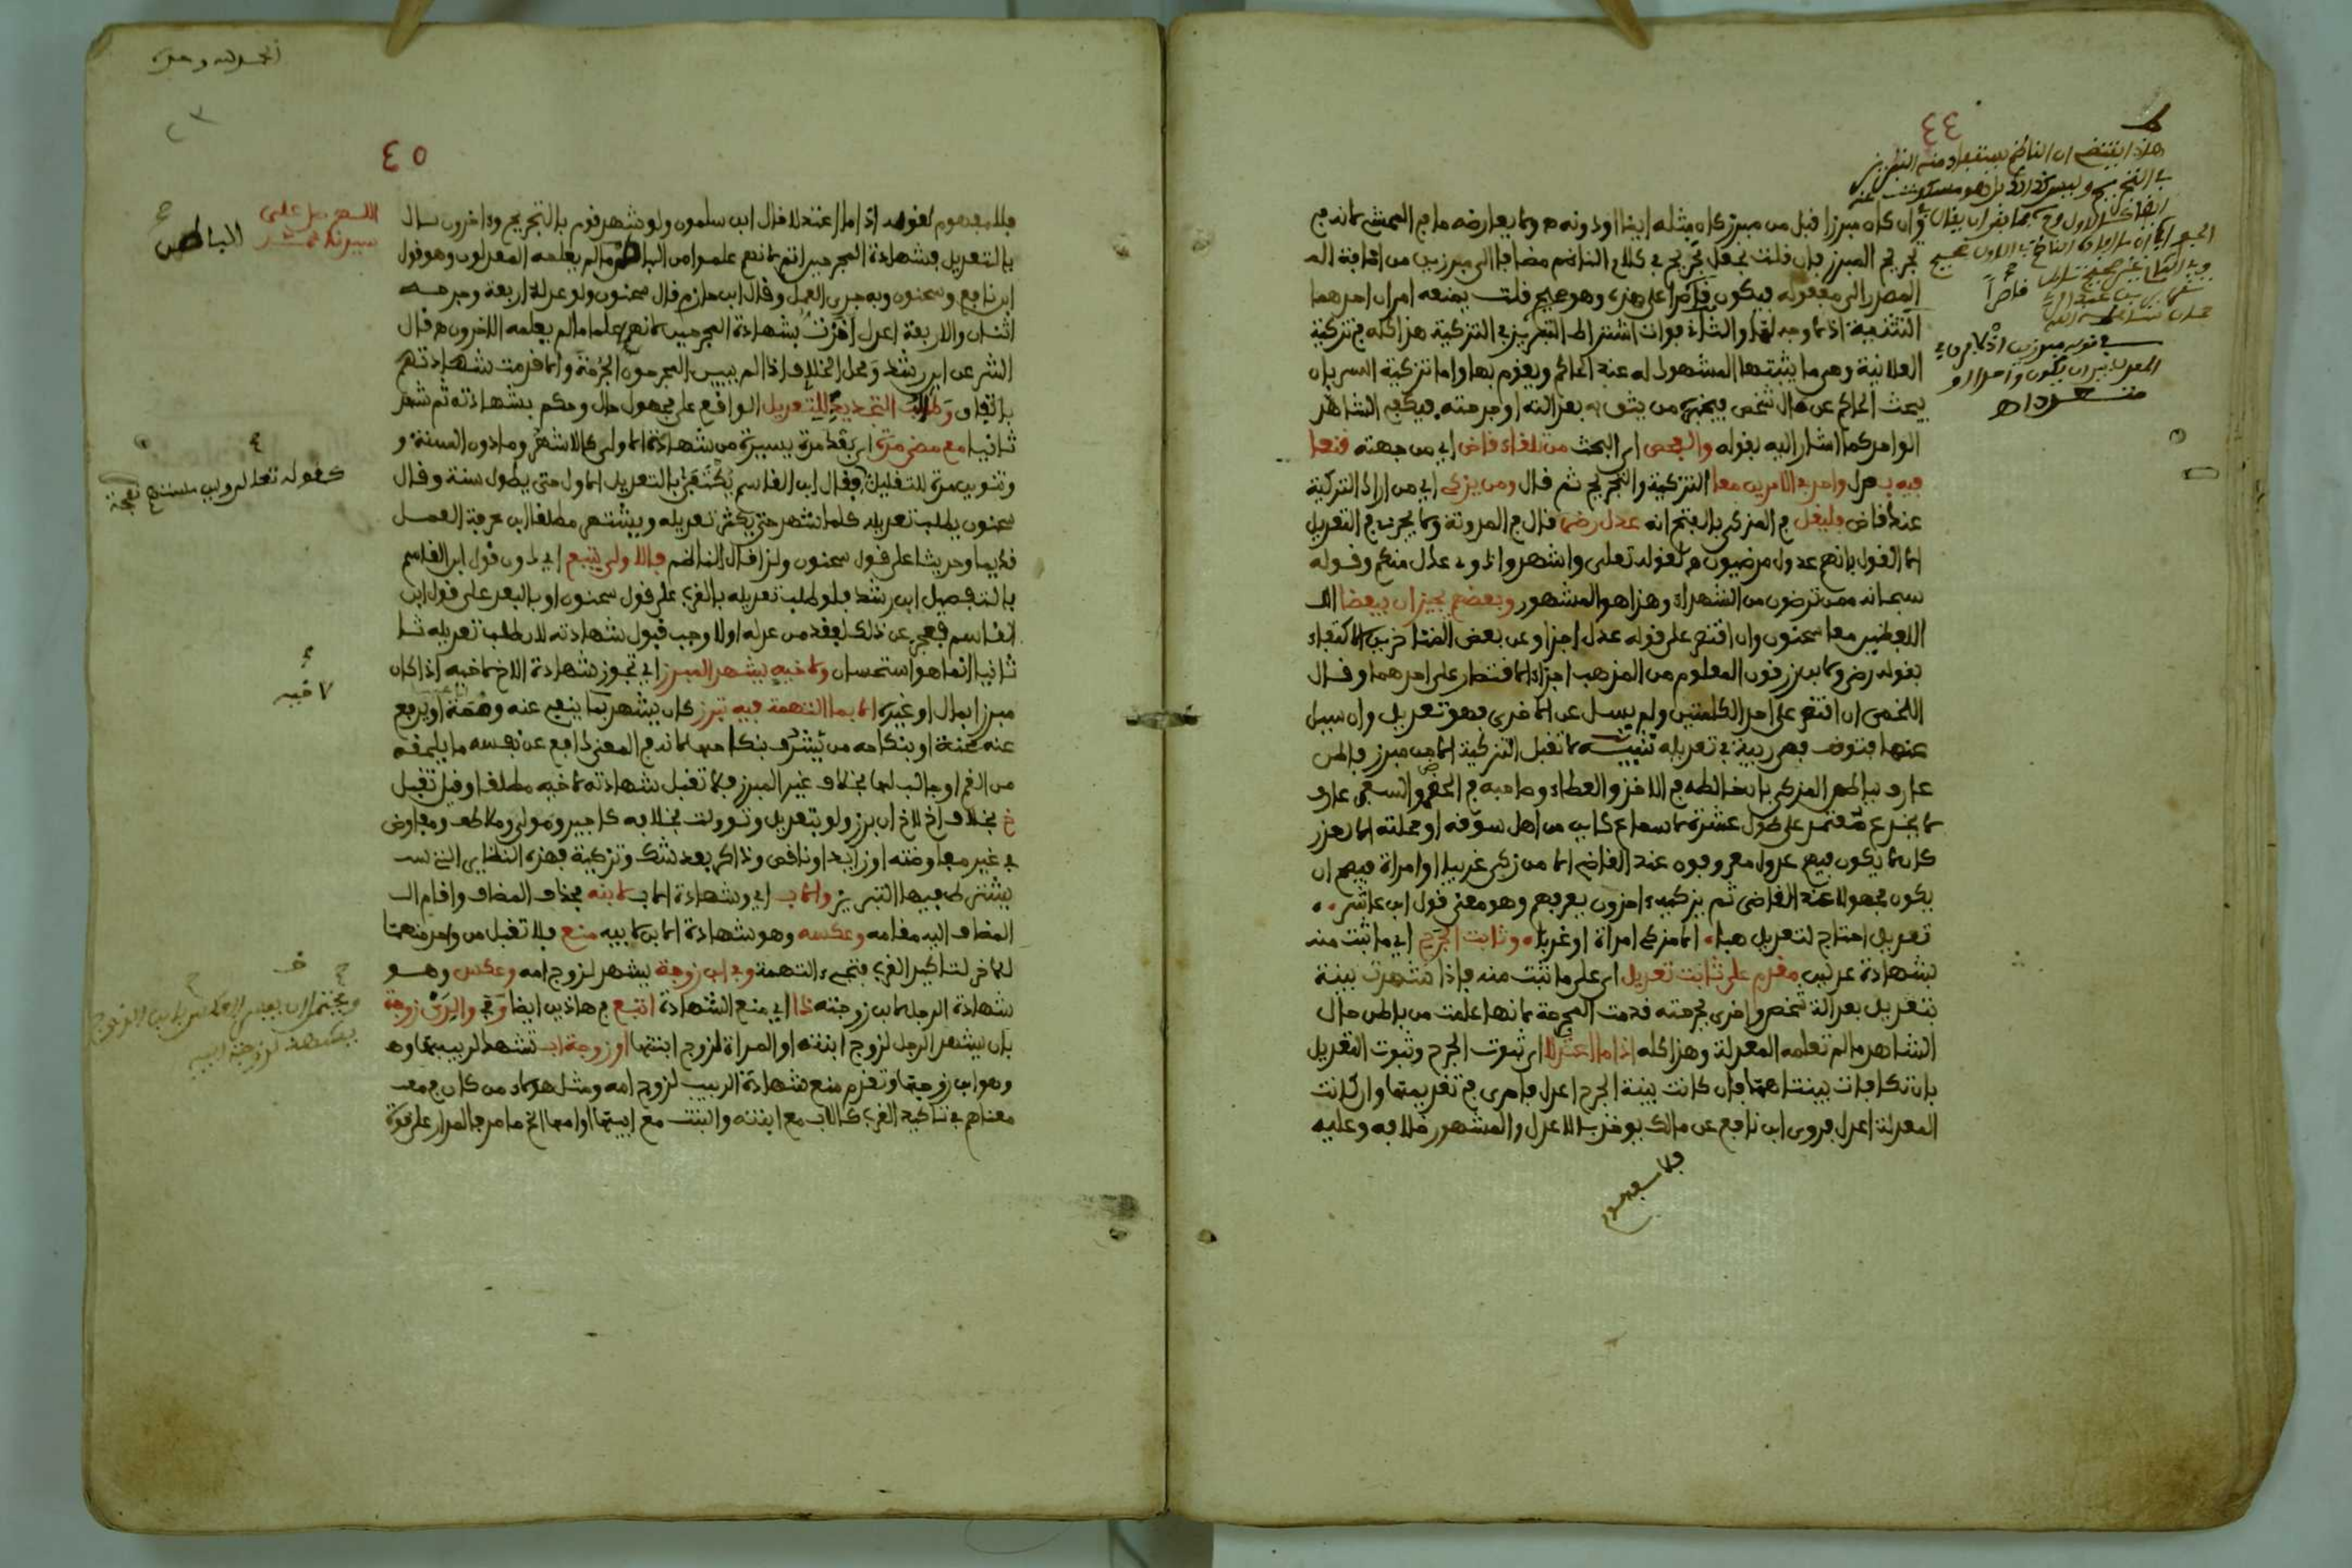 ٤٤
وان كان مبرزا قبل من مبرز كان مثله ايضا او دونه
تجريح المبرز فان قلت يجعل تجريح في كلام الناظم مضافا الى مبرزين من اضافة الم
المصدر الى مفعوله فيكون قاصرا على هذا وهو صحيح قلت يمنعه امران احدهما
التثنية اذ لا وجه لها والثاني فوات اشتراط التبريز في التزكية هذا كله في تزكية
العلانية وهي ما يثبتها المشهود له عند الحاكم ويقوم بها واما تزكية السر بان
يبحث الحاكم عن حال شخص فيخبره من يثق به بعدالته او جرحته فيكفي الشاهد
الواحد كما اشار اليه بقوله والفحص اي البحث من تلقاء قاض اي من جهته قنعا
فيه بعدل واحد في الامرين معا التزكية والتجريح ثم قال ومن يزكي اي من اراد التزكية
عند قاض فليقل في المزكى بالفتح انه عدل رضى قال في المدونة ولا يجزئ في التعديل
الا القول بانهم عدول مرضيون لقوله تعالى واشهدوا ذوي عدل منكم وقوله
سبحانه ممن ترضون من الشهداء وهذا هو المشهور وبعضهم يجيز ان يبعضا اي
اللفظين معا سحنون وان اقتصر على قوله عدل اجزأ وعن بعض المتاخرين الاكتفاء
بقوله رضى ولابن زرقون المعلوم من المذهب اجزاء الاقتصار على احدهما وقال
اللخمي ان اقتصر على احد الكلمتين ولم يسئل عن الاخرى فهو تعديل وان سئل
عنها فتوقف فهي ريبة في تعديله تنبيه لا تقبل التزكية الا من مبرز فاطن
عارف بباطن المزكى بالمخالطة في الاخذ والعطاء وصاحبه في الحضر والسفر عارف
لا يخدع معتمد على طول عشرة لا سماع كائن من اهل سوقه او محلته الا لعذر
كان لا يكون فيهم عدول معروفون عند القاضي الا من زكى غريبا او امراة فيصح ان
يكون مجهولا عند القاضي ثم يزكيه اخرون يعرفهم وهو معنى قول ابن عاشر
تعديل احتاج لتعديل هباء الا مزكي امراة او غرباء وثابت الجرح اي ما ثبت منه
بشهادة عدلين مقدم على ثابت تعديل اي على ما ثبت منه فاذا شهدت بينة
بتعديل بعدالة شخص واخرى بجرحته قدمت المجرحة لانها علمت من باطن حال
الشاهد ما لم تعلمه المعدلة وهذا كله اذا ما اعتدلا اي ثبوت الجرح وثبوت التعديل
بان تكافات بينتاهما فان كانت بينة الجرح اعدل فاحرى في تقديمها وان كانت
المعدلة اعدل فروى ابن نافع عن مالك يوخذ بالاعدل والمشهور خلافه وعليه
فلا مفهوم
الحمد لله وحده
٤٥
فلا مفهوم لقوله اذا ما اعتدلا قال ابن سلمون ولو شهد قوم بالتجريح واخرون
بالتعديل فشهادة المجرحين اتم لانهم علموا من الباطن ما لم يعلمه المعدلون وهو قول
ابن نافع وسحنون وبه جرى العمل وقال ابن حازم قال سحنون ولو عدله اربعة وجرحه
اثنان والاربعة اعدل اخذت بشهادة المجرحين لانهم علموا ما لم يعلمه الاخرون قال
الشر عن ابن رشد ومحل الخلاف اذا لم يبين المجرحون الجرحة والا قدمت شهادتهم
باتفاق وطالب التجديد للتعديل الواقع على مجهول حال وحكم بشهادته ثم شهد
ثانيا مع مضي مدة اي بعد مدة يسيرة من شهادته الاولى كالاشهر وما دون السنة و
وتنوين مدة للتقليل فقال ابن القاسم يكتفى بالتعديل الاول حتى يطول سنة وقال
سحنون يطلب تعديله كلما شهد حتى يكثر تعديله ويشتهر مطلقا ابن عرفة العمل
قديما وحديثا على قول سحنون ولذا قال الناظم فالاولى يتبع اي دون قول ابن القاسم
بالتفصيل ابن رشد فلو طلب تعديله بالقرب على قول سحنون او بالبعد على قول ابن
القاسم فعجز عن ذلك لفقد من عدله اولا وجب قبول شهادته لان طلب تعديله ثا
ثانيا انما هو استحسان ولاخيه يشهد المبرز اي تجوز شهادة الاخ لاخيه اذا كان
مبرزا بمال او غيره الا بما التهمة فيه تبرز كان يشهد بما ينفي عنه وصمة او يرفع
عنه محنة او بنكاحه من يشرف بنكاحها لانه في المعنى دافع عن نفسه ما يلحقه
من الغم او جالب لها بخلاف غير المبرز فلا تقبل شهادته لاخيه مطلقا وقيل تقبل
خ بخلاف اخ لاخ ان برز ولو بتعديل وتؤولت بخلافه كاجير ومولى وملاطف ومفاوض
في غير مفاوضته او زائد او ناقص وذاكر بعد شك وتزكية فهذه النظائر التي
يشترط فيها التبريز والاب اي وشهادة الاب لابنه بحذف المضاف واقام ال
المضاف اليه مقامه وعكسه وهو شهادة الابن لابيه منع فلا تقبل من واحد منهما
للاخر لتاكيد القرب فتجيء التهمة وفي ابن زوجة يشهد لزوج امه وعكس وهو
شهادة الرجل لابن زوجته ذا اي منع الشهادة اتبع في هاذين ايضا وفي والدي زوجة
بان يشهد الرجل لزوج ابنته او المراة لزوج ابنتها او زوجة اب تشهد لربيبها وهـ
وهو ابن زوجها وتقدم منع شهادة الربيب لزوج امه ومثل هؤلاء من كان في معـ
معناهم في تاكيد القرب كالاب مع ابنته والبنت مع ابيها او امها الخ ما مر فالمدار على قوة
اللهم صل على
سيدنا محمد
الباطن
كقوله تعالى ولي نعجة
لاخيه